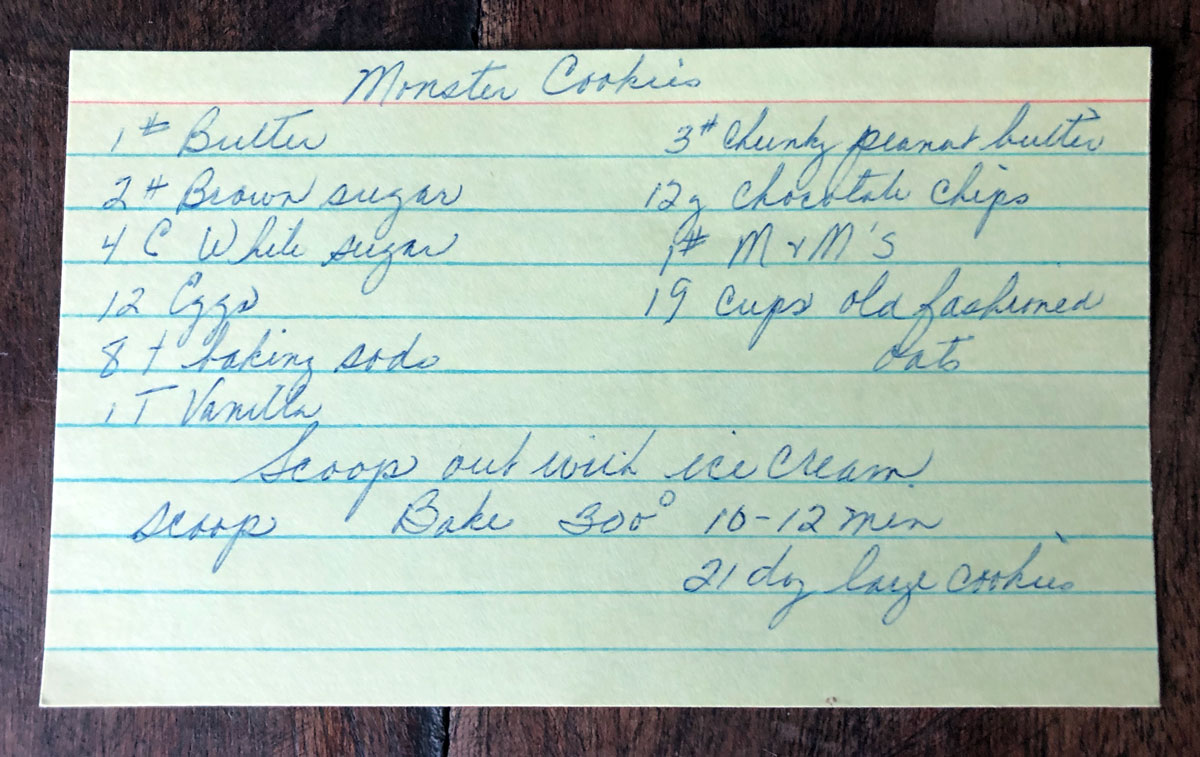 Monster Cookies
1# Butter
2# Brown sugar
4 C White sugar
12 Eggs
8 t baking soda
1 T Vanilla
3# chunky peanut butter
12z chocolate chips
1# M + M's
19 cups old fashioned
oats
Scoop out with ice cream
scoop Bake 300° 10-12 min
21 doz large cookies